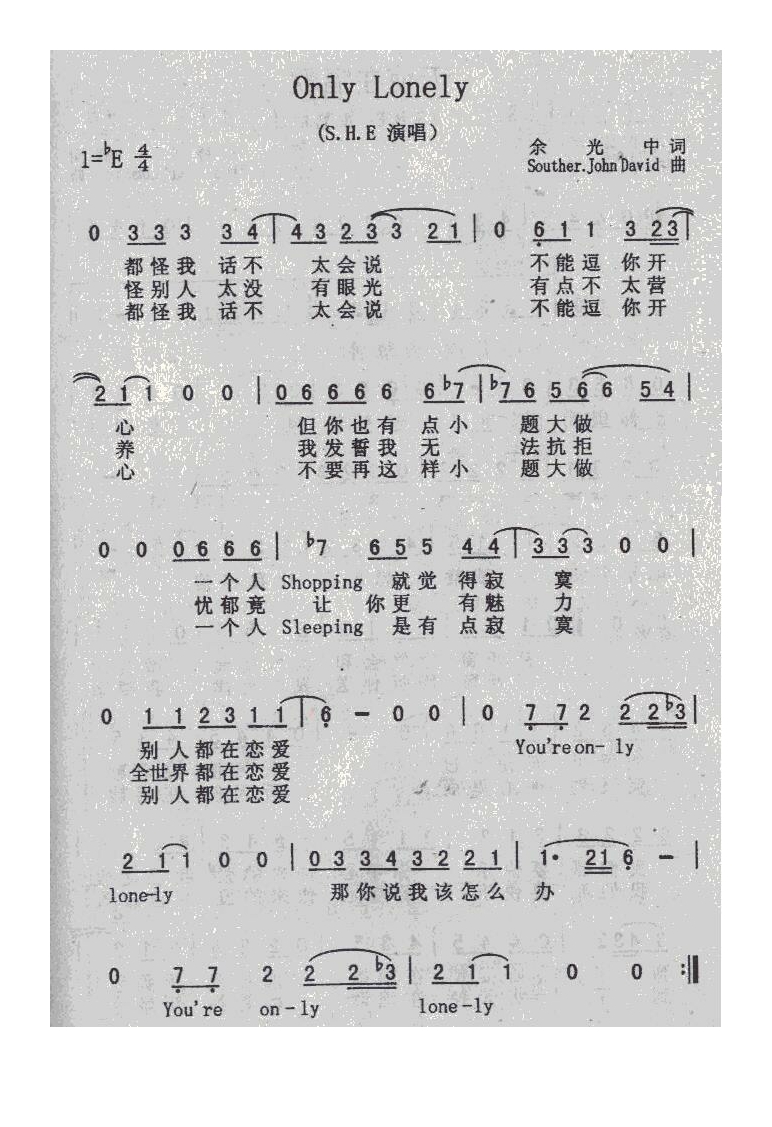 Only Lonely
(S.H.E 演唱)
1=♭E 4/4
余光中词
Souther.John David 曲
0 3 3 3 3 4 | 4 3 2 3 3 2 1 | 0 6 1 1 3 2 3 |
都怪我 话不 太会说 不能逗 你开
怪别人 太没 有眼光 有点不 太营
都怪我 话不 太会说 不能逗 你开
2 1 1 0 0 | 0 6 6 6 6 6 ♭7 | ♭7 6 5 6 6 5 4 |
心 但你也有 点小 题大做
养 我发誓我 无 法抗拒
心 不要再这 样小 题大做
0 0 0 6 6 6 | ♭7 6 5 5 4 4 | 3 3 3 0 0 |
一个人 Shopping 就觉 得寂 寞
忧郁竟 让 你更 有魅 力
一个人 Sleeping 是有 点寂 寞
0 1 1 2 3 1 1 | 6 - 0 0 | 0 7 7 2 2 2 ♭3 |
别人都在恋爱 You're on-ly
全世界都在恋爱
别人都在恋爱
2 1 1 0 0 | 0 3 3 4 3 2 2 1 | 1· 2 1 6 - |
lone-ly 那你说我该怎么 办
0 7 7 2 2 2 ♭3 | 2 1 1 0 0 :‖
You're on-ly lone-ly